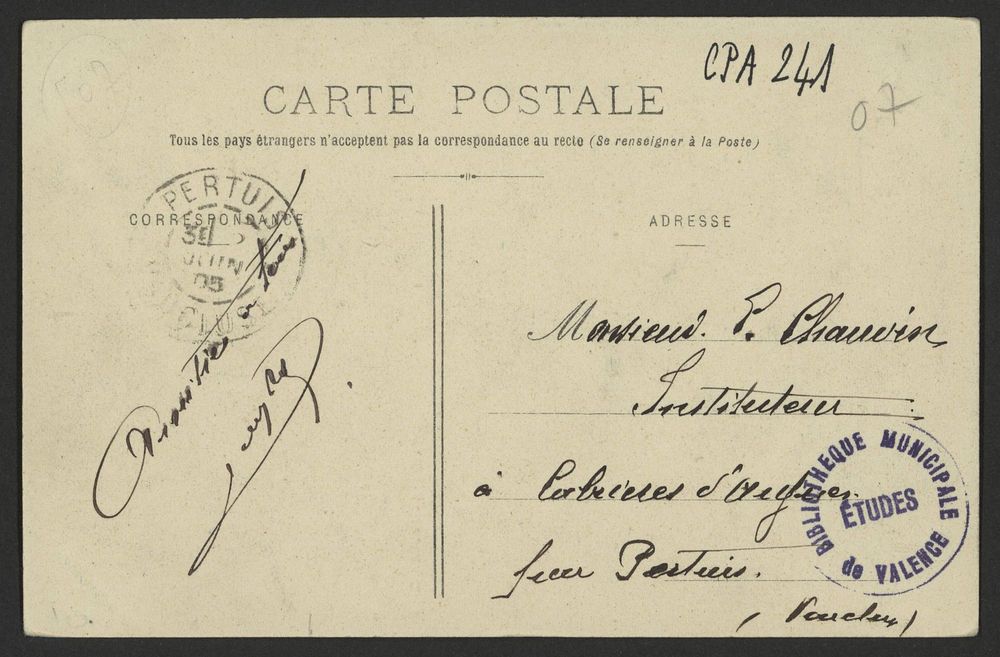 CPA 241
07
CARTE POSTALE
Tous les pays étrangers n'acceptent pas la correspondance au recto (Se renseigner à la Poste)
CORRESPONDANCE
PERTUIS
JUIN
05
VAUCLUSE
Amitiés à tous
ADRESSE
Monsieur P. Chauvin
Instituteur
à Cabrières d'Aigues
par Pertuis.
(Vaucluse)
BIBLIOTHEQUE MUNICIPALE
ÉTUDES
de VALENCE